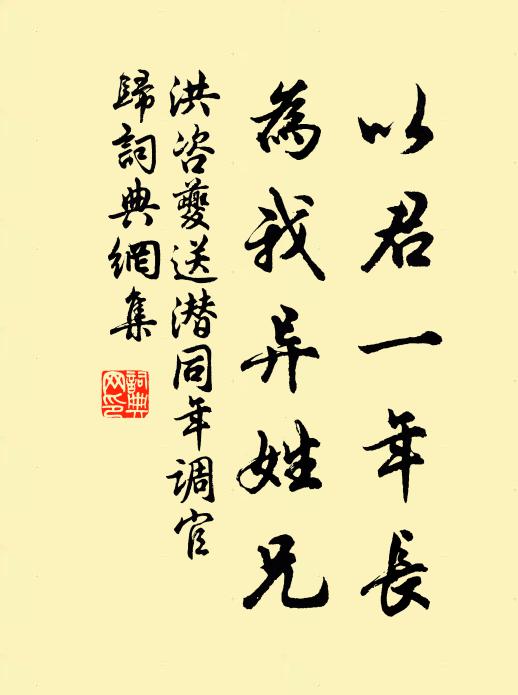 以君一年長
為我异姓兄
洪咨夔送潜同年調官
歸詞典網集
詞典网印